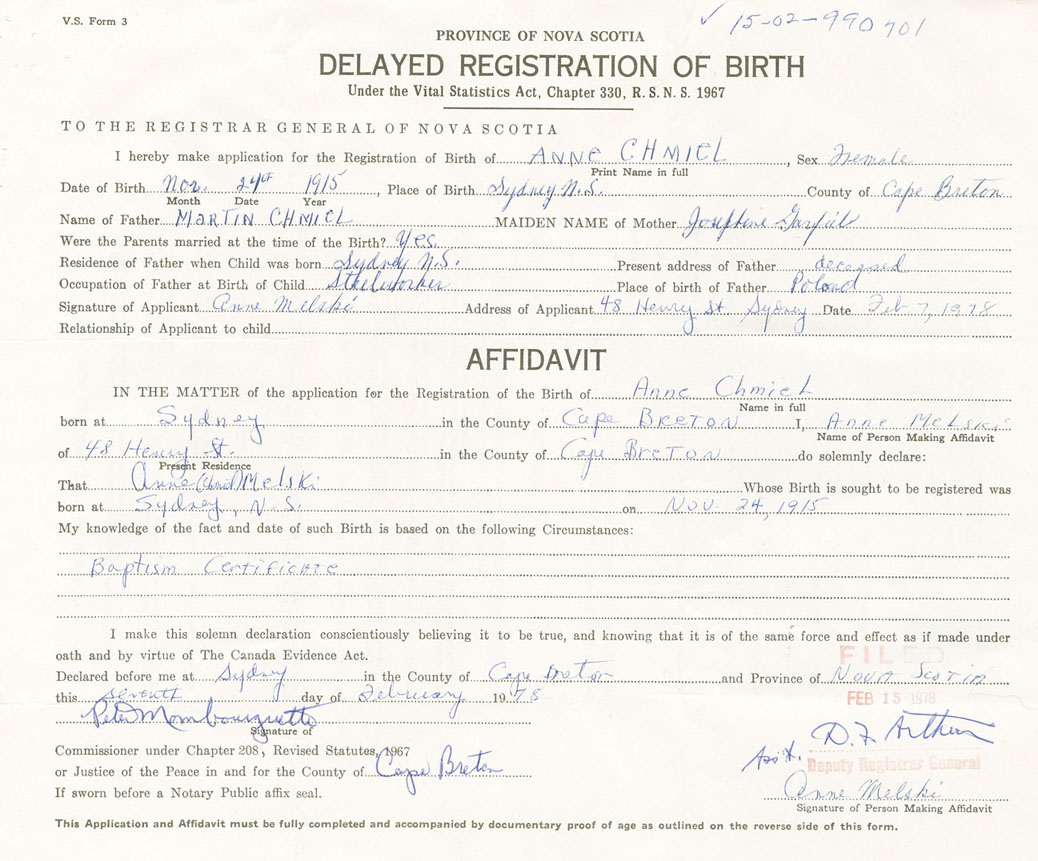 V.S. Form 3
✓ 15-02-990701
PROVINCE OF NOVA SCOTIA
DELAYED REGISTRATION OF BIRTH
Under the Vital Statistics Act, Chapter 330, R. S. N. S. 1967
TO THE REGISTRAR GENERAL OF NOVA SCOTIA
I hereby make application for the Registration of Birth of ANNE CHMIEL, Sex Female
Print Name in full
Date of Birth Nov. 24th 1915, Place of Birth Sydney N.S. County of Cape Breton
Month Date Year
Name of Father MARTIN CHMIEL MAIDEN NAME of Mother Josephine
Were the Parents married at the time of the Birth? Yes
Residence of Father when Child was born Sydney N.S. Present address of Father deceased
Occupation of Father at Birth of Child Place of birth of Father Poland
Signature of Applicant Anne Melski Address of Applicant 48 Henry St Sydney Date Feb 7, 1978
Relationship of Applicant to child
AFFIDAVIT
IN THE MATTER of the application for the Registration of the Birth of Anne Chmiel
Name in full
born at Sydney in the County of Cape BRETON I, Anne Melski
Name of Person Making Affidavit
of 48 Henry St. in the County of Cape BRETON do solemnly declare:
Present Residence
That Anne (Chmiel) Melski Whose Birth is sought to be registered was
born at Sydney, N.S. on NOV. 24, 1915
My knowledge of the fact and date of such Birth is based on the following Circumstances:
Baptism Certificate
I make this solemn declaration conscientiously believing it to be true, and knowing that it is of the same force and effect as if made under
oath and by virtue of The Canada Evidence Act.
FILED
Declared before me at Sydney in the County of Cape Breton and Province of NOVA SCOTIA
this seventh day of February 1978
FEB 15 1978
Peter Mombourquette
Signature of
Commissioner under Chapter 208, Revised Statutes, 1967
D.F. Arthur
or Justice of the Peace in and for the County of Cape Breton
Ass't. Deputy Registrar General
If sworn before a Notary Public affix seal.
Anne Melski
Signature of Person Making Affidavit
This Application and Affidavit must be fully completed and accompanied by documentary proof of age as outlined on the reverse side of this form.